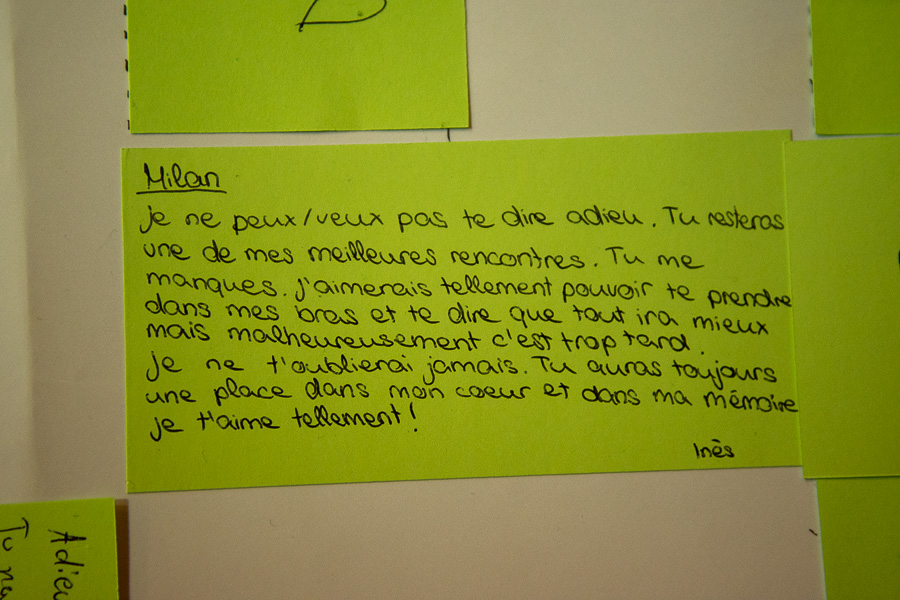 Milan
je ne peux/veux pas te dire adieu. Tu resteras
une de mes meilleures rencontres. Tu me
manques. j'aimerais tellement pouvoir te prendre
dans mes bras et te dire que tout ira mieux
mais malheureusement c'est trop tard.
je ne t'oublierai jamais. Tu auras toujours
une place dans mon coeur et dans ma mémoire
je t'aime tellement!
Inès
Adieu
Tu